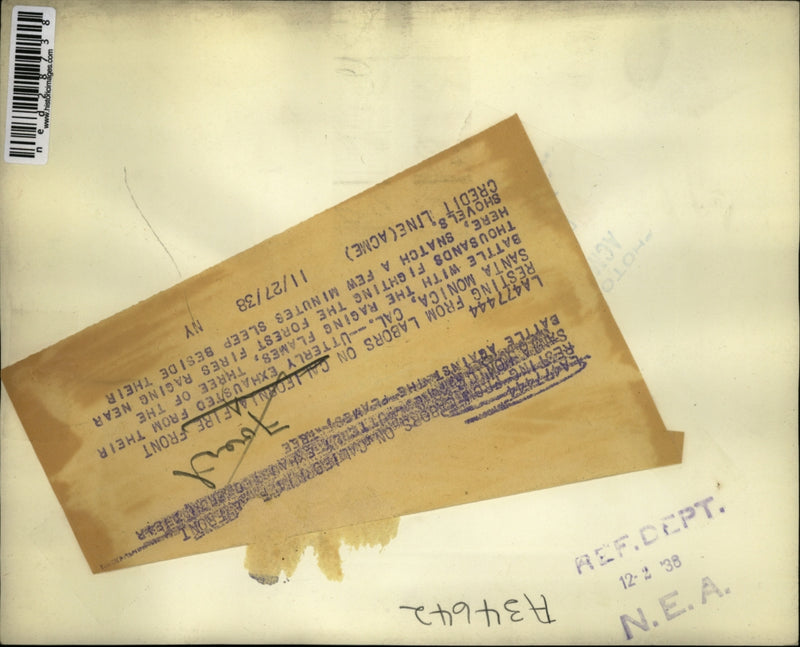 LA477444
RESTING FROM LABORS ON CALIFORNIA FIRE FRONT
SANTA MONICA, CAL.--UTTERLY EXHAUSTED FROM THEIR
BATTLE WITH THE RAGING FLAMES, THREE OF THE
THOUSANDS FIGHTING THE FOREST FIRES RAGING NEAR
HERE, SNATCH A FEW MINUTES SLEEP BESIDE THEIR
SHOVELS.
CREDIT LINE(ACME) 11/27/38 NY
Forest
A34642
REF. DEPT.
12-2 '38
N. E. A.
ned28738
www.historicimages.com